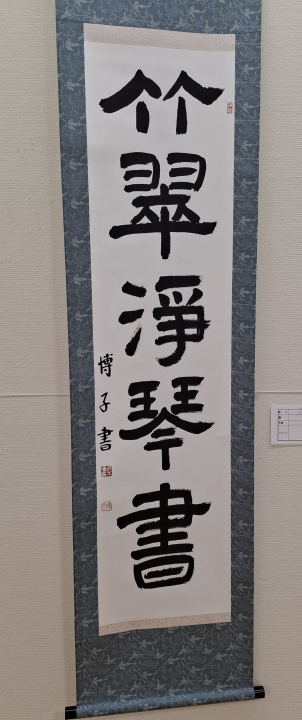 竹翠淨琴書
博子書